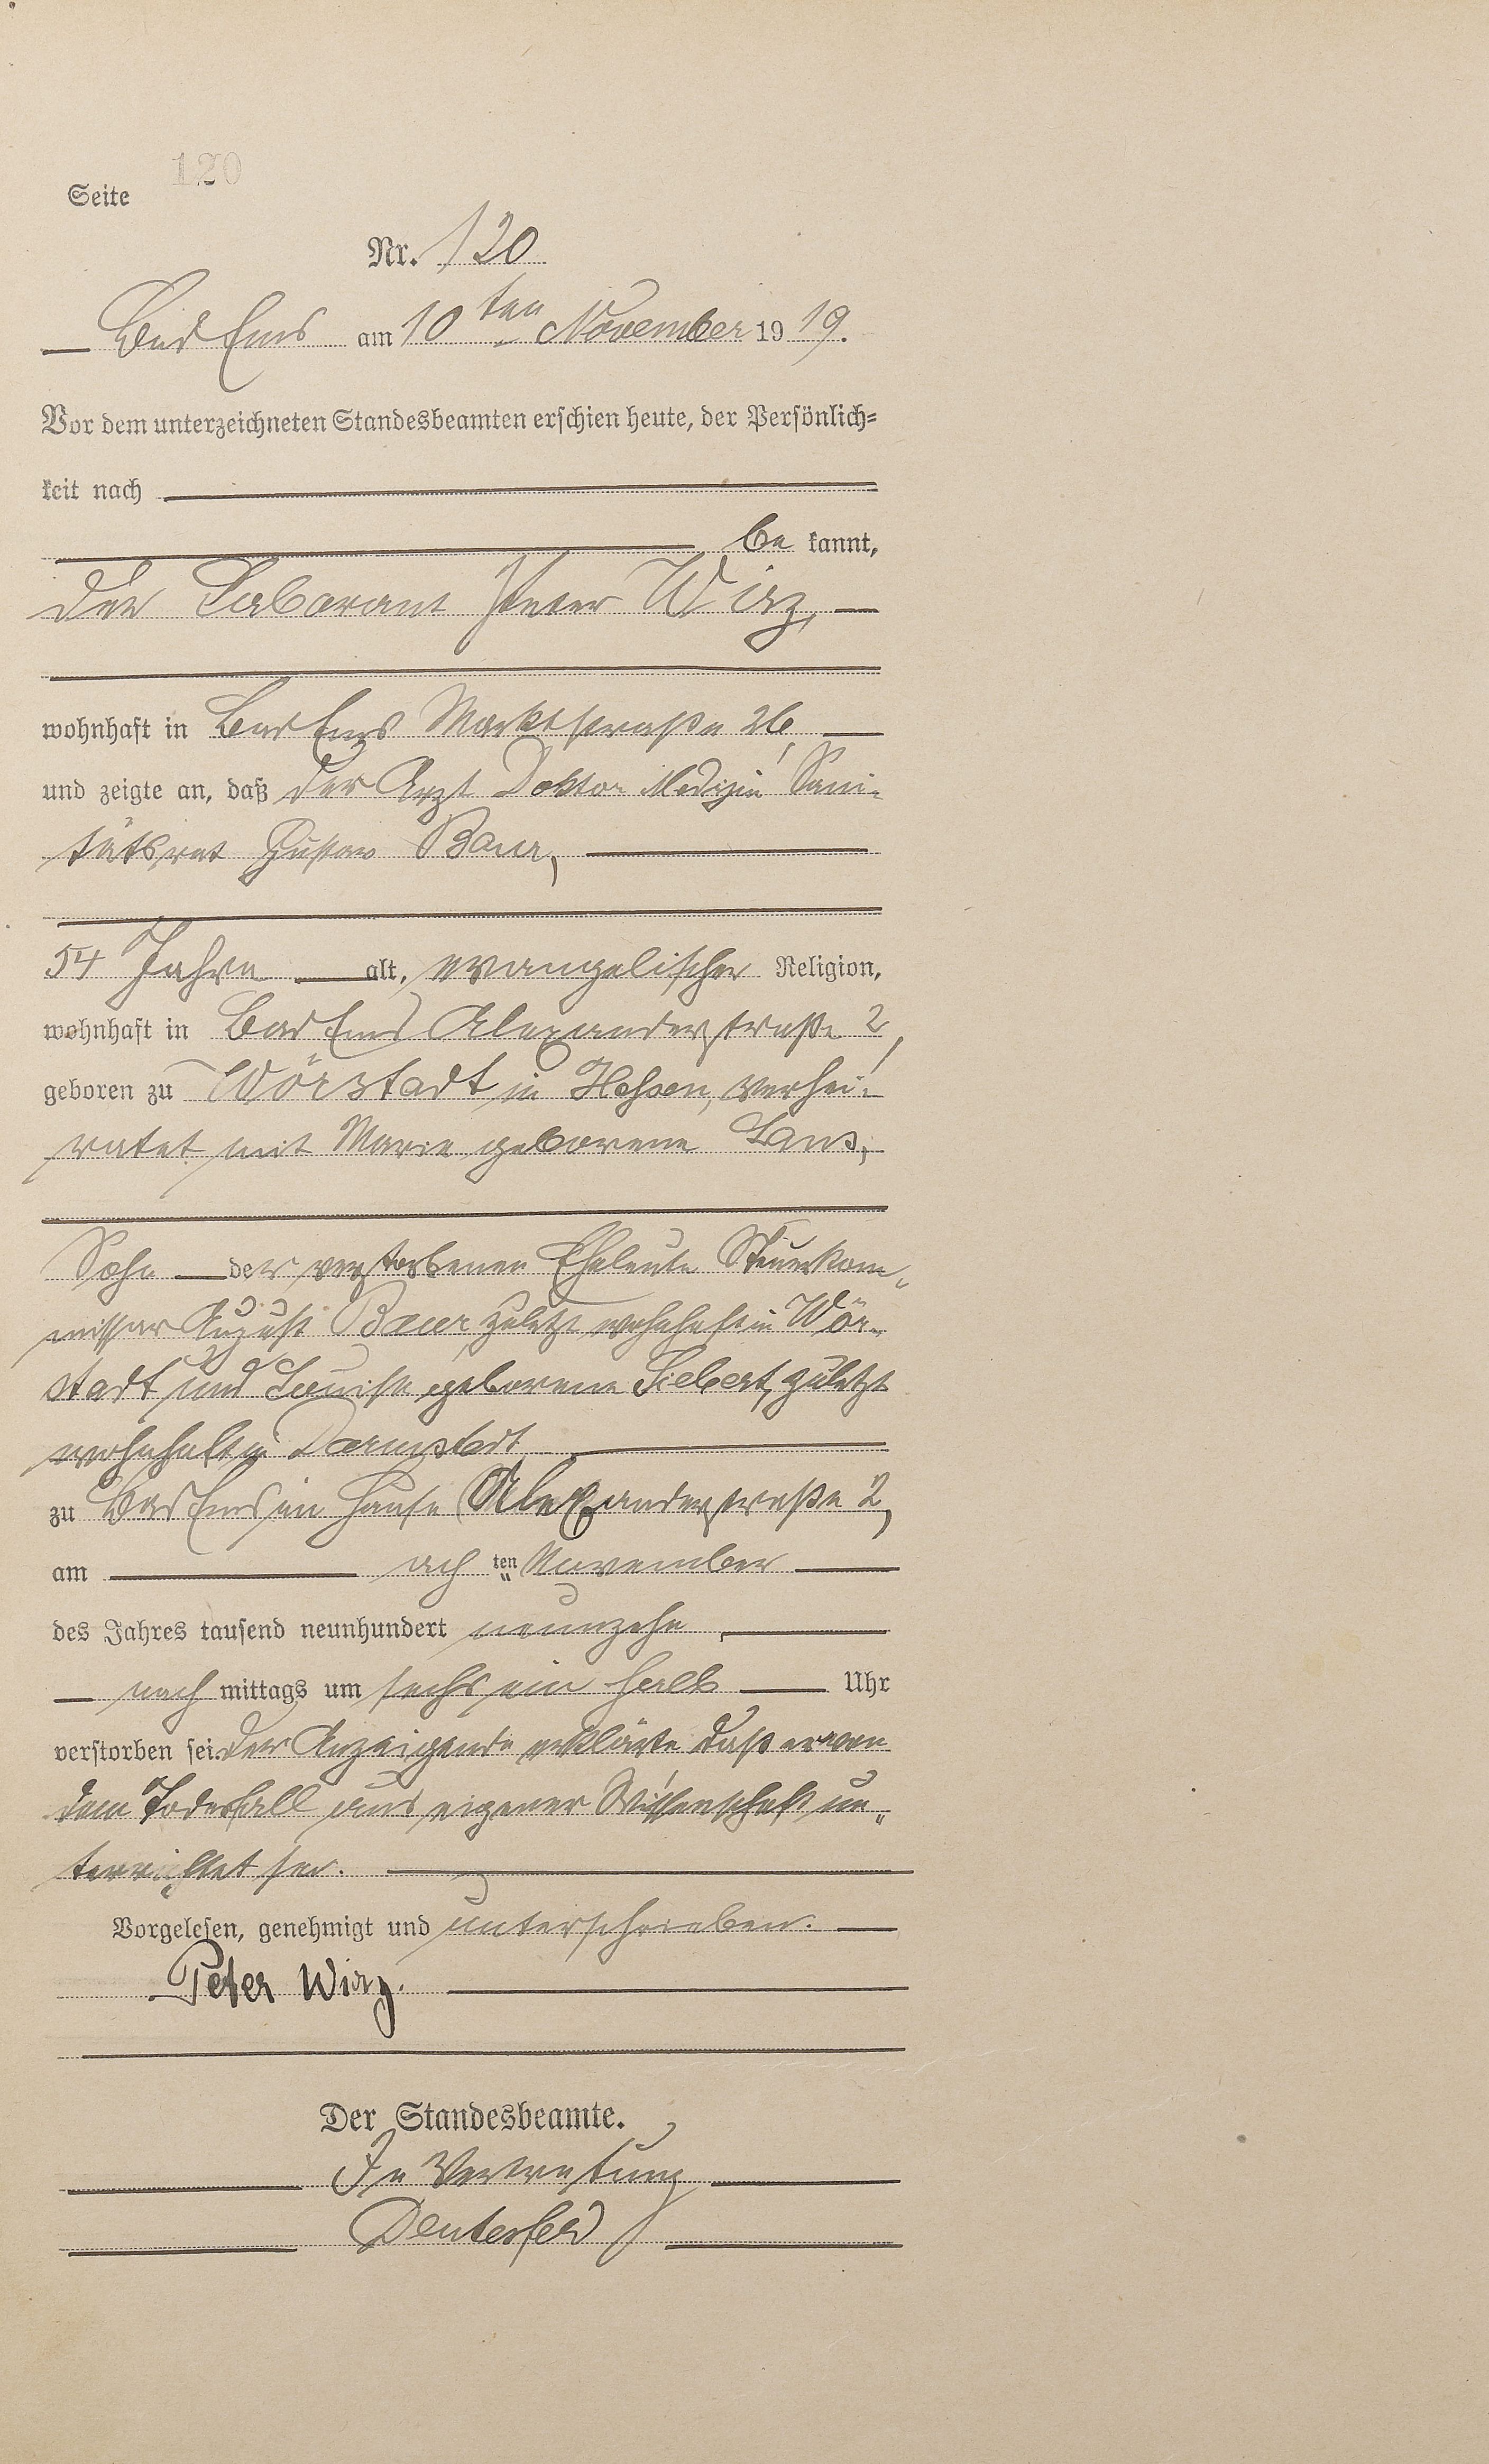 120
Seite
Nr. 120
Bad Ems am 10ten November 1919.
Vor dem unterzeichneten Standesbeamten erschien heute, der Persönlich=
keit nach
be kannt,
der Laborant Peter Wirz,
wohnhaft in Bad Ems Marktstraße 26,
und zeigte an, daß der Arzt Doktor Medizin Sani-
tätsrat Gustav Baur,
54 Jahre alt, evangelischer Religion,
wohnhaft in Bad Ems Alexanderstraße 2,
geboren zu Wörstadt in Hessen, verhei-
ratet mit Marie geborene
Sohn der verstorbenen Eheleute Steuerkom-
missar August Baur zuletzt wohnhaft in Wör-
stadt und Louise geborene Siebert, zuletzt
wohnhaft in Darmstadt
zu Bad Ems im Hause Alexanderstraße 2,
am achten November
des Jahres tausend neunhundert neunzehn
nach mittags um sechs ein halb Uhr
verstorben sei. Der Anzeigende erklärte daß er von
dem Todesfall aus eigener Wissenschaft un-
terrichtet sei.
Vorgelesen, genehmigt und unterschrieben.
Peter Wirz.
Der Standesbeamte.
In Vertretung